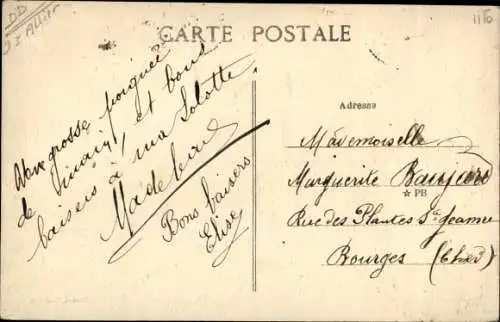 DD
CARTE POSTALE
Une grosse poignée
de main, et bons
baisers à ma Lolotte
Madeleine
Bons baisers
Elise
Adresse
Mademoiselle
Marguerite Baujard
☆ PB
Rue des Plantes Ste Jeanne
Bourges (Cher)